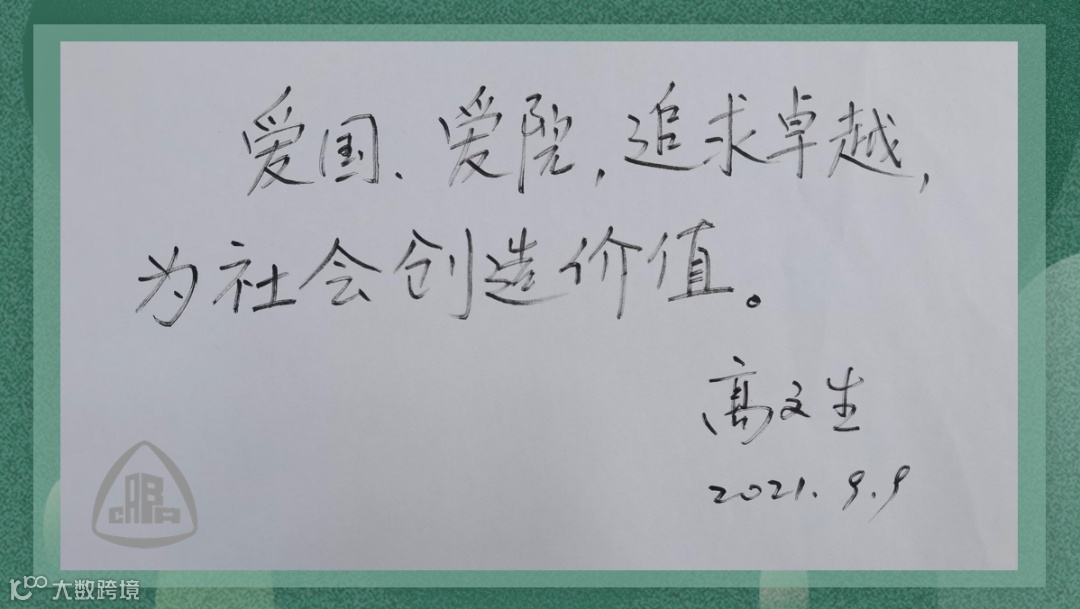 爱国、爱院，追求卓越，
为社会创造价值。
高文生
2021.9.9
CABR
大数跨境